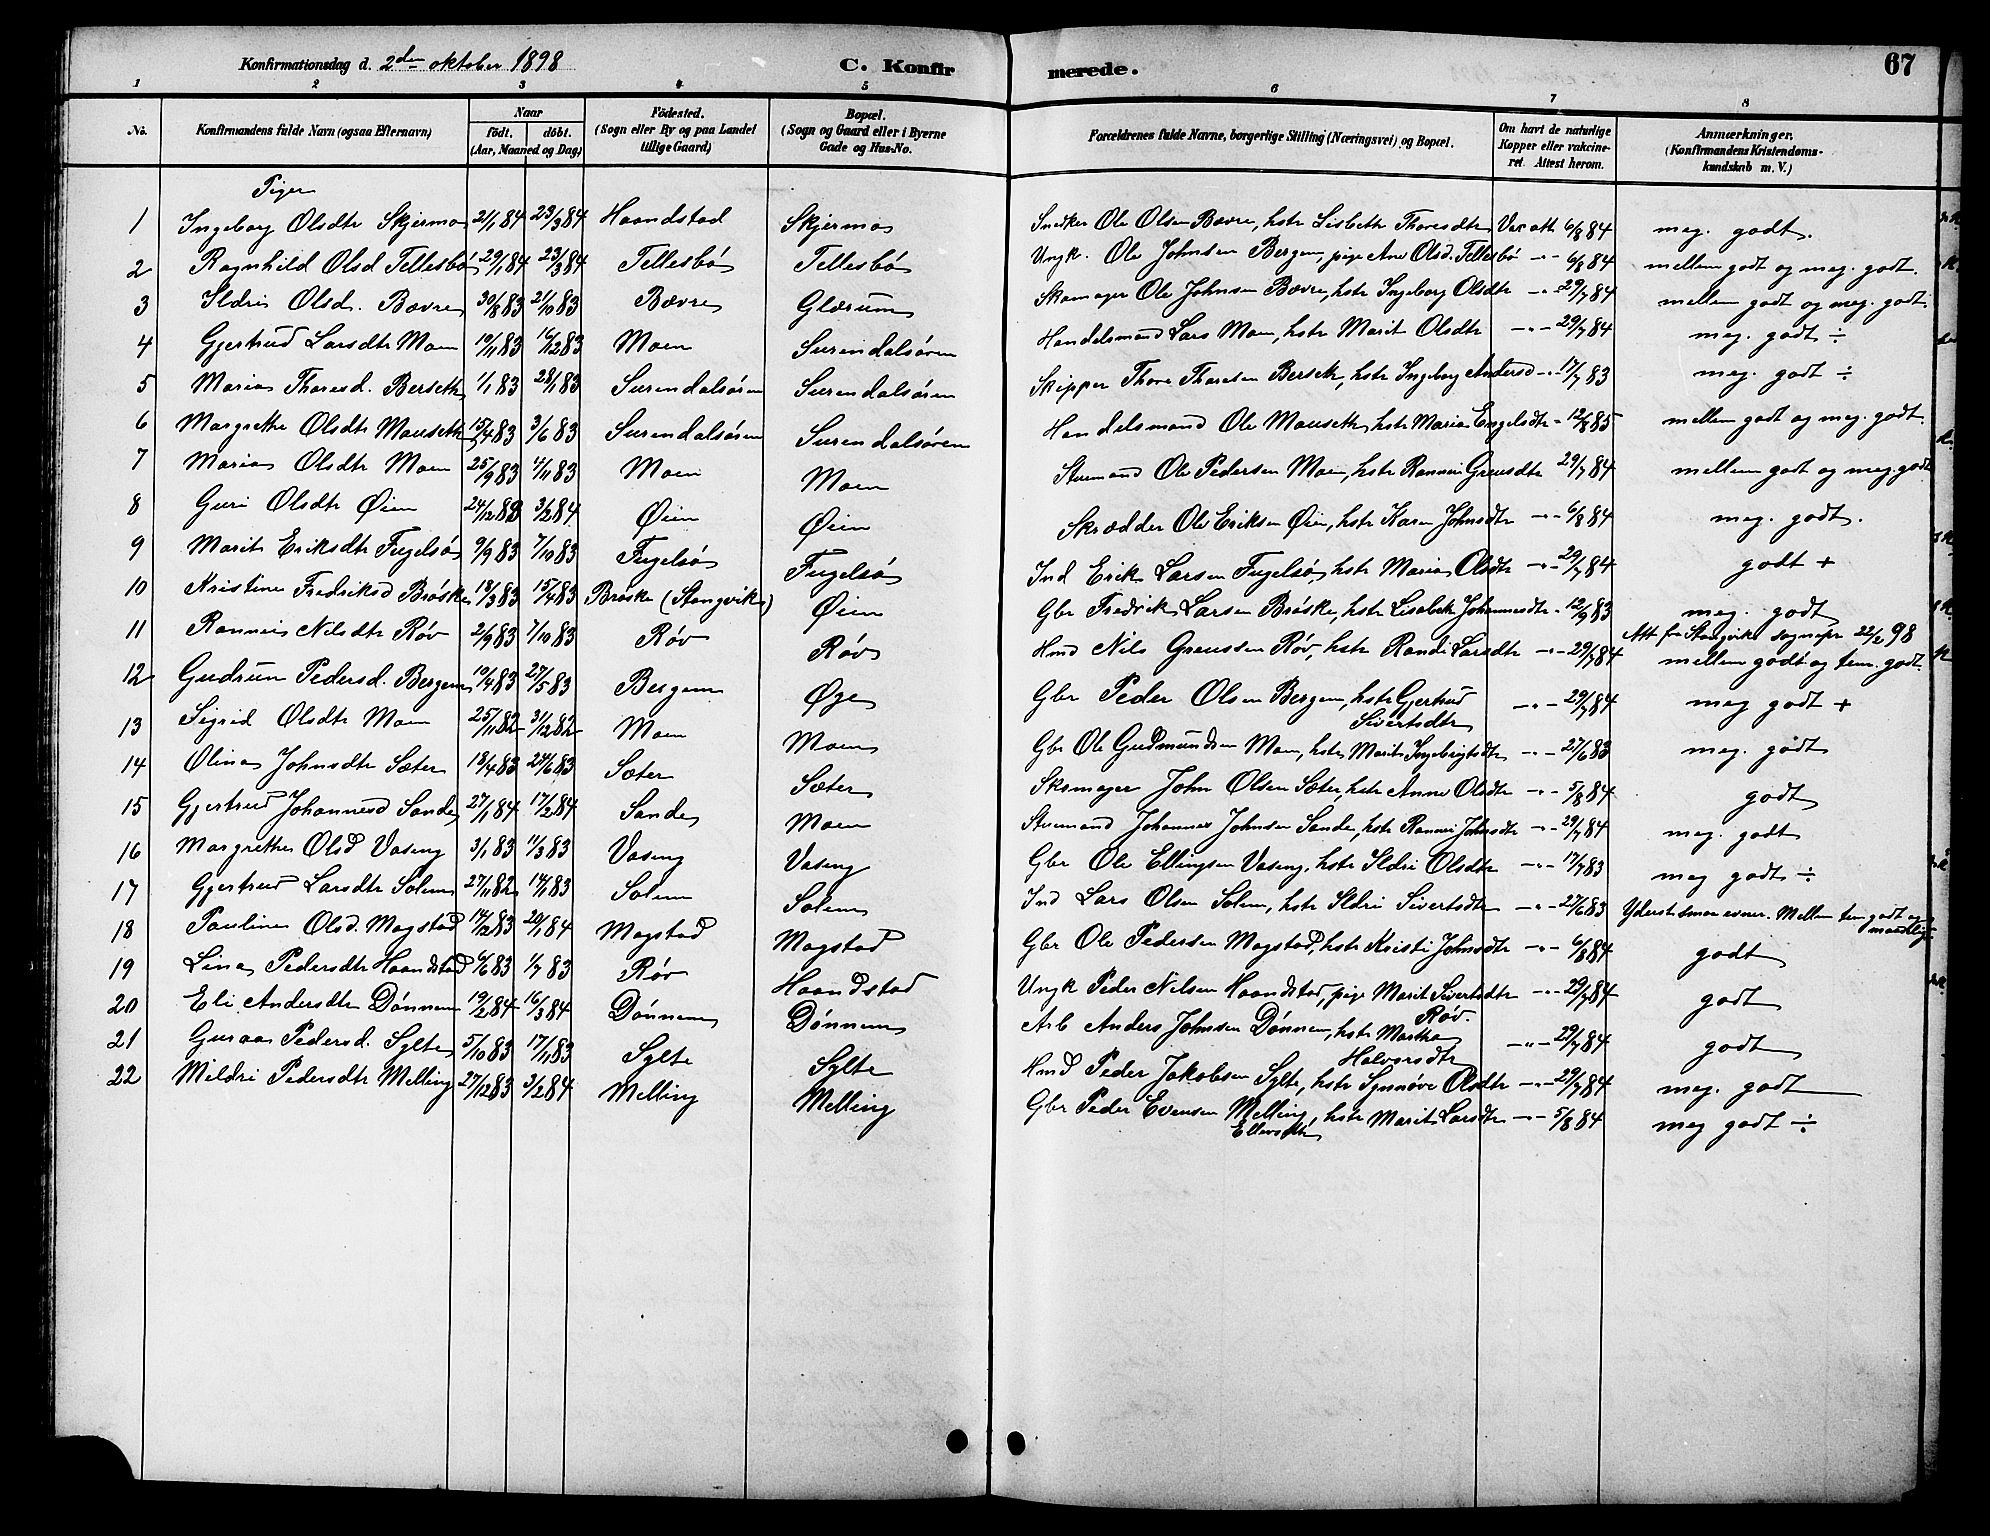 Konfirmationsdag d. 2den oktober 1898
C. Konfirmerede.
67
1 2 3 4 5 6 7 8
No. Konfirmandens fulde Navn (ogsaa Efternavn) Naar født. døbt. (Aar, Maaned og Dag) Födested. (Sogn eller By og paa Landet tillige Gaard) Bopæl. (Sogn og Gaard eller i Byerne Gade og Hus-No. Forældrenes fulde Navne, borgerlige Stilling (Næringsvei) og Bopæl. Om havt de naturlige Kopper eller vakcineret. Attest herom. Anmærkninger. (Konfirmandens Kristendomskundskab m. V.)
Piger
1 Ingeborg Olsdtr Skjermo 21/1 84 23/3 84 Haandstad Skjermo Snedker Ole Olsen Bævre, hstr Lisbeth Thoresdtr Vac att 6/8 84 meg. godt.
2 Ragnhild Olsd Tellesbö 29/1 84 23/3 84 Tellesbö Tellesbö Ungk. Ole Johnsen Bergem, pige Ane Olsd. Tellesbö -"- 6/8 84 mellem godt og meg. godt.
3 Ildri Olsd. Bævre 30/8 83 21/10 83 Bævre Glærum Skomager Ole Johnsen Bævre, hstr Ingeborg Olsdtr -"- 29/7 84 mellem godt og meg. godt.
4 Gjertrud Larsdtr Moen 10/11 83 16/12 83 Moen Surendalsøren Handelsmand Lars Moen, hstr Marit Olsdtr -"- 29/7 84 meg. godt ÷
5 Maria Thoresd. Berseth 1/1 83 28/1 83 Surendalsøren Surendalsøren Skipper Thore Thoresen Berseth, hstr Ingeborg Andersd -"- 17/7 83 meg. godt ÷
6 Margrethe Olsdtr Mauseth 15/4 83 3/6 83 Surendalsøren Surendalsøren Handelsmand Ole Mauseth, hstr Maria Engelsdtr -"- 12/8 85 mellem godt og meg. godt.
7 Maria Olsdtr Moen 25/9 83 4/11 83 Moen Moen Stuemand Ole Pedersen Moen, hstr Rannei Greusdtr 29/7 84 mellem godt og meg. godt
8 Guri Olsdtr Øien 24/12 83 3/2 84 Øien Øien Skrædder Ole Eriksen Øien, hstr Karen Johnsdtr -"- 6/8 84 meg. godt.
9 Marit Eriksdtr Fugelsø 9/9 83 7/10 83 Fugelsø Fugelsø Ind Erik Larsen Fugelsø, hstr Maria Olsdtr -"- 29/7 84 godt +
10 Kristine Fredriksd Brøske 18/3 83 15/4 83 Brøske (Stangvik) Øien Gbr Fredrik Larsen Brøske, hstr Lisabeth Johannesdtr -"- 12/9 83 meg. godt
Att fra Stangviks sognepr 22/2 98
11 Rannei Nilsdtr Røv 2/9 83 7/10 83 Røv Røv Hmd Nils Greussen Røv, hstr Randi Larsdtr -"- 29/7 84 mellem godt og tem. godt.
12 Gudrun Pedersd. Bergem 10/4 83 27/5 83 Bergem Øye Gbr Peder Olsen Bergem, hstr Gjertrud Sivertsdtr -"- 29/7 84 meg godt +
13 Sigrid Olsdtr Moen 25/11 82 31/12 82 Moen Moen Gbr Ole Gudmundsen Moen, hstr Marit Ingebrigtsdtr -"- 27/6 83 meg. godt
14 Olina Johnsdtr Sæter 18/4 83 24/6 83 Sæter Sæter Skomager John Olsen Sæter, hstr Anne Olsdtr -"- 5/8 84 godt
15 Gjertrud Johannesd Sande 27/1 84 17/2 84 Sande Moen Stuemand Johannes Johnsen Sande, hstr Rannei Johnsdtr -"- 29/7 84 meg. godt
16 Margrethe Olsd Vaseng 3/1 83 11/3 83 Vaseng Vaseng Gbr Ole Ellingsen Vaseng, hstr Ildri Olsdtr -"- 17/7 83 meg godt ÷
17 Gjertrud Larsdtr Solem 27/11 82 14/1 83 Solem Solem Ind Lars Olsen Solem, hstr Ildri Sivertsdtr -"- 27/6 83 Yderst smaa evner. Mellem tem godt og maadelig
18 Pauline Olsd. Mogstad 17/12 83 20/1 84 Mogstad Mogstad Gbr Ole Pedersen Mogstad, hstr Kristi Johnsdtr -"- 6/8 84 godt
19 Lina Pedersdtr Haandstad 4/6 83 1/7 83 Røv Haandstad Ungk Peder Nilsen Haandstad, pige Marit Sivertsdtr Røv. -"- 29/7 84 godt
20 Eli Andersdtr Dønnem 19/2 84 16/3 84 Dønnem Dønnem Arb Anders Johnsen Dønnem, hstr Martha Halvorsdtr -"- 29/7 84 godt
21 Guraa Pedersd. Sylte 5/10 83 17/11 83 Sylte Sylte Hmd Peder Jakobsen Sylte, hstr Synnøve Olsdtr -"- 29/7 84 meg. godt
22 Mildri Pedersdtr Melling 27/12 83 3/2 84 Melling Melling Gbr Peder Evensen Melling, hstr Marit Larsdtr -"- 5/8 84 meg godt ÷